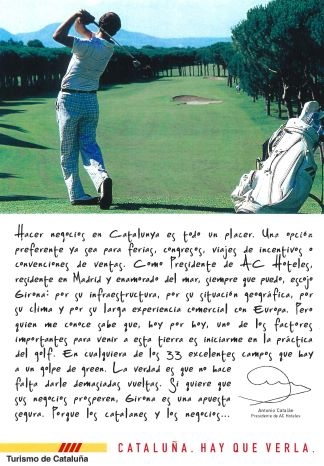 Hacer negocios en Catalunya es todo un placer. Una opción
preferente ya sea para ferias, congresos, viajes de incentivos o
convenciones de ventas. Como Presidente de AC Hoteles,
residente en Madrid y enamorado del mar, siempre que puedo, escojo
Girona: por su infraestructura, por su situación geográfica, por
su clima y por su larga experiencia comercial con Europa. Pero
quien me conoce sabe que, hoy por hoy, uno de los factores
importantes para venir a esta tierra es iniciarme en la práctica
del golf. En cualquiera de los 33 excelentes campos que hay
a un golpe de green. La verdad es que no hace
falta darle demasiadas vueltas. Si quiere que
sus negocios prosperen, Girona es una apuesta
segura. Porque los catalanes y los negocios...
Antonio Catalán
Presidente de AC Hoteles
Turismo de Cataluña
CATALUÑA. HAY QUE VERLA.